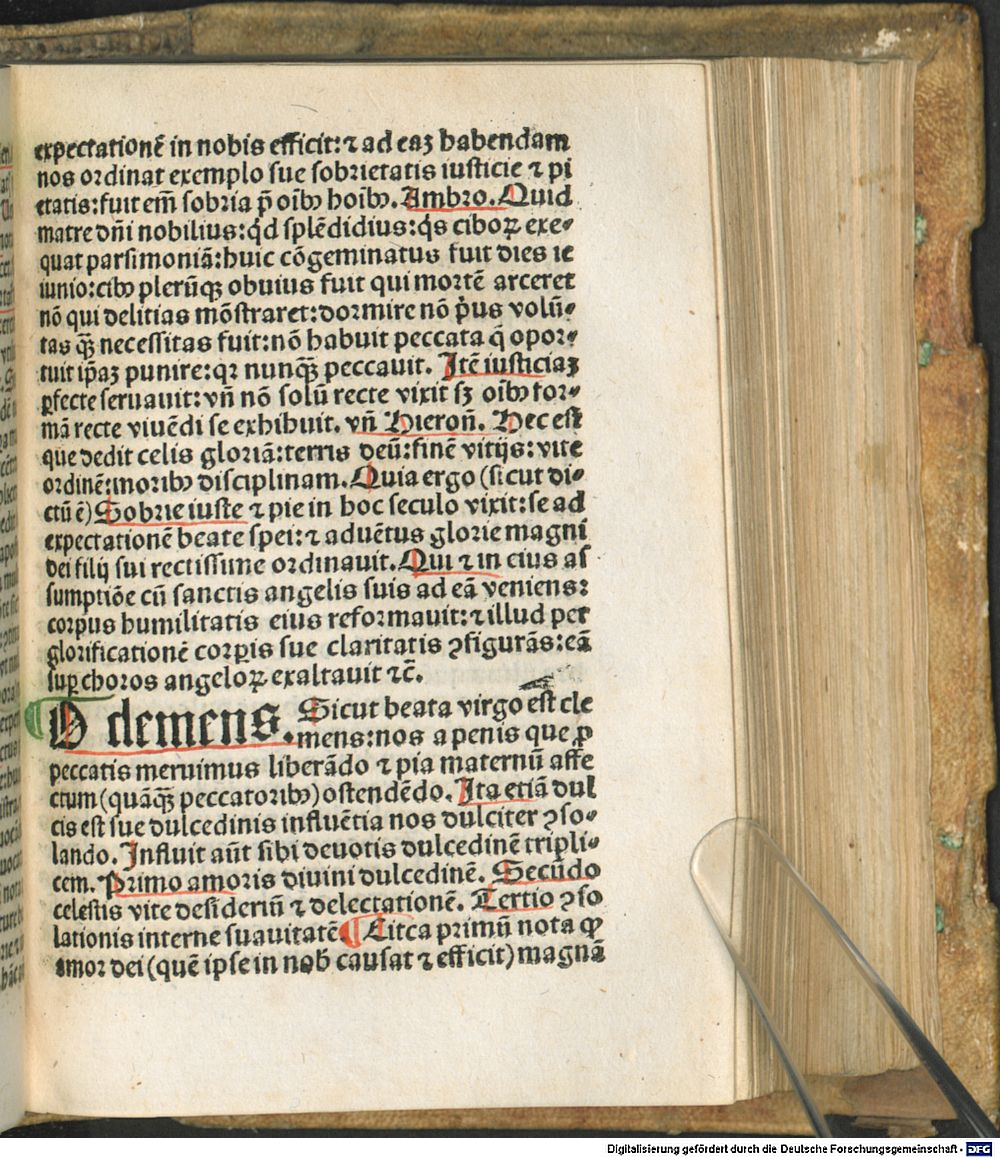 expectationē in nobis efficit: ⁊ ad eaȝ habendam
nos ordinat exemplo sue sobrietatis iusticie ⁊ pi
etatis: fuit em̄ sobria p̄ oībꝰ hoībꝰ. Ambro. Quid
matre dn̄i nobilius: qͥd splēdidius: qͥs ciboꝝ exe⸗
quat parsimoniā: huic cōgeminatus fuit dies ie
iunio: cibꝰ plerūqꝫ obuius fuit qui mortē arceret
nō qui delitias mōstraret: dormire nō pͥus volū⸗
tas qꝫ̄ necessitas fuit: nō habuit peccata q̄ opor⸗
tuit ip̄aȝ punire: qꝛ nunqꝫ̄ peccauit. Itē iusticiaȝ
ꝑfecte seruauit: vn̄ nō solū recte vixit sȝ oībꝰ for⸗
mā recte viuēdi se exhibuit. vn̄ Hieron̄. Hec est
que dedit celis gloriā: terris deū: finē vitijs: vite
ordinē: moribꝰ disciplinam. Quia ergo (sicut di⸗
ctū ē) Sobrie iuste ⁊ pie in hoc seculo vixit: se ad
expectationē beate spei: ⁊ aduētus glorie magni
dei filij sui rectissime ordinauit. Qui ⁊ in eius as
sumptiōe cū sanctis angelis suis ad eā veniens:
corpus humilitatis eius reformauit: ⁊ illud per
glorificationē corꝑis sue claritatis ꝯfigurās: eā
suꝑ choros angeloꝝ exaltauit ⁊c̄.
¶ O clemens. Sicut beata virgo est cle
mens: nos a penis que ꝓ
peccatis meruimus liberādo ⁊ pia maternū affe
ctum (quāqꝫ̄ peccatoribꝰ) ostendēdo. Ita etiā dul
cis est sue dulcedinis influētia nos dulciter ꝯso⸗
lando. Influit aūt sibi deuotis dulcedinē tripli⸗
cem. Primo amoris diuini dulcedinē. Secūdo
celestis vite desideriū ⁊ delectationē. Tertio ꝯso
lationis interne suauitatē. ¶ Circa primū nota ꝙ
amor dei (quē ipse in nob̄ causat ⁊ efficit) magnā
Digitalisierung gefördert durch die Deutsche Forschungsgemeinschaft - DFG